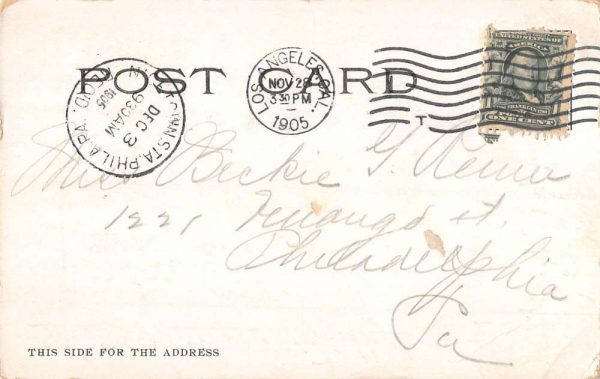 POST CARD
LOS ANGELES, CAL.
NOV 28
3 30 PM
1905
T
DEC 3
9 30 AM
1905
STA. PHILA. PA.
FRANKLIN
ONE CENT
Miss Beckie G.
1221 Venango st.
Philadelphia
Pa
THIS SIDE FOR THE ADDRESS